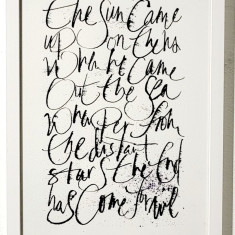 the Sun Came
up on the
When it Came
Out the Sea
Whisper from
the distant
stars the End
has Come for